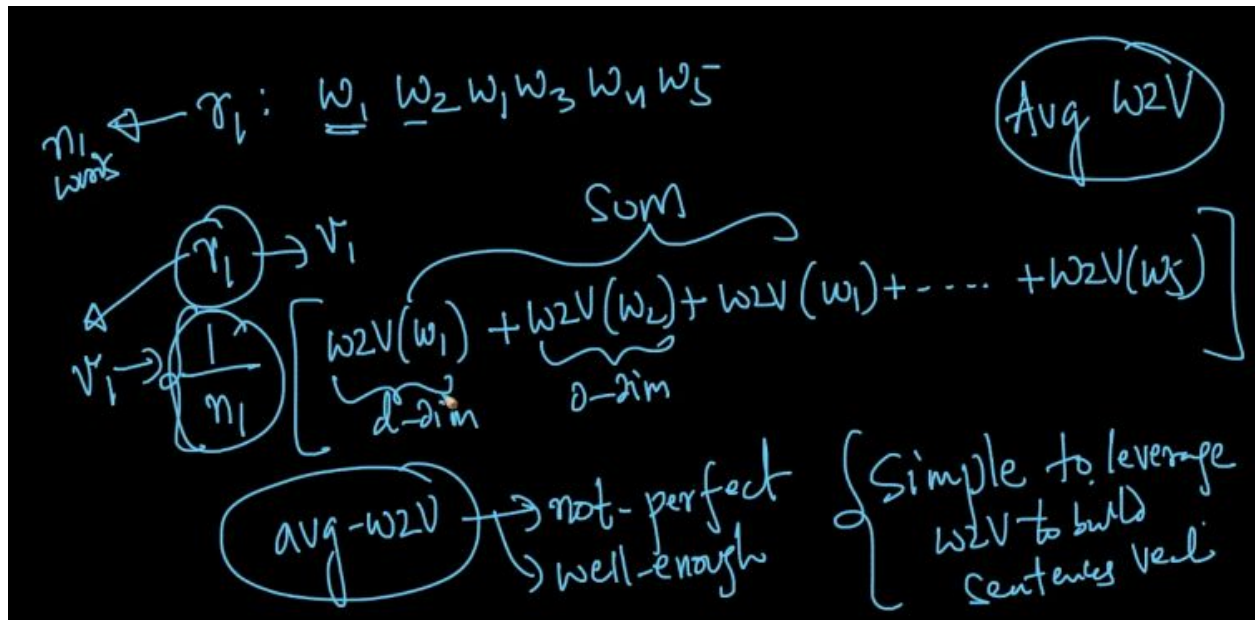 r₁ : w₁ w₂ w₁ w₃ w₄ w₅
n₁
words
Avg W2V
Sum
r₁ → v₁
v₁ → 1/n₁ [ W2V(w₁) + W2V(w₂) + W2V(w₁) + ---- + W2V(w₅) ]
d-dim
d-dim
avg-W2V → not-perfect
→ well-enough
Simple to leverage
W2V to build
Sentences